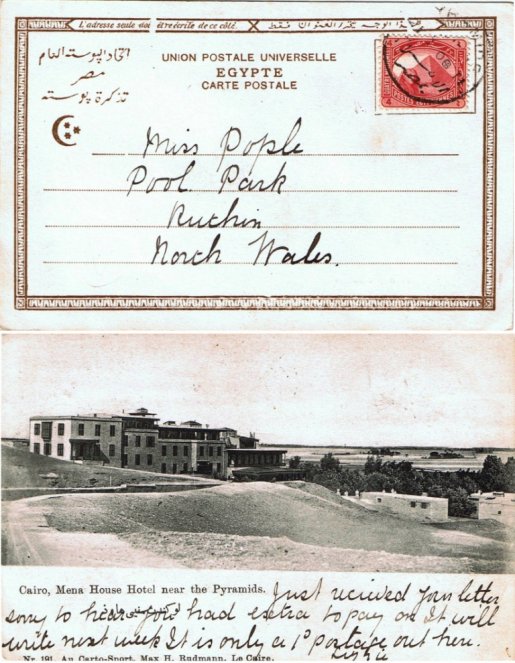 L'adresse seule doit être écrite de ce côté. هذا الوجه يحرر العنوان فقط
اتحاد البوسته العام
مصر
تذكرة بوسته
UNION POSTALE UNIVERSELLE
EGYPTE
CARTE POSTALE
Miss Pople
Pool Park
Ruthin
North Wales.
Cairo, Mena House Hotel near the Pyramids. Just recieved your letter
sorry to hear you had extra to pay on it will
write next week It is only a 1d postage out here.
Nr. 191 Au Carto-Sport, Max H. Rudmann, Le Caire.